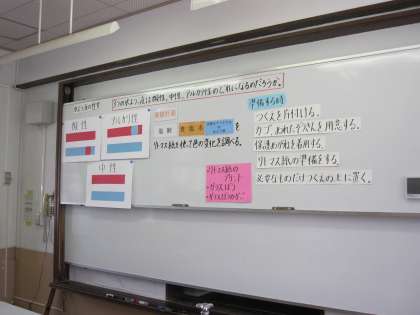 3つの水よう液は酸性、中性、アルカリ性のどれになるのだろうか。
酸性
アルカリ性
中性
実験計画
塩酸
食塩水
リトマス紙を使って色の変化を調べる。
リトマス紙の
準備する時
つくえを片付ける。
カゴ、ぬれたぞうきんを用意する。
保護めがねを着用する。
リトマス紙の準備をする。
必要なものだけつくえの上に置く。